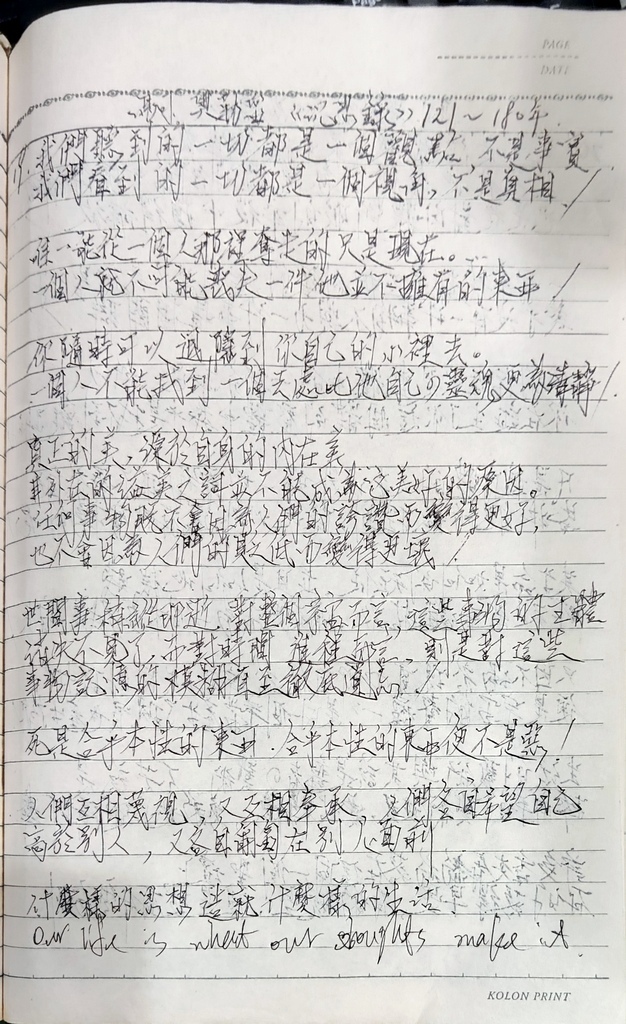 PAGE
DATE
奧勒留 《沉思錄》 121~180年
我們聽到的一切都是一個觀點,不是事實
我們看到的一切都是一個視角,不是真相!
唯一能從一個人那裡奪走的只是現在。
一個人就不可能丟失一件他並不擁有的東西!
你隨時可以退隱到你自己的心裡去。
一個人不能找到一個去處比他自己的靈魂更為清靜!
真正的美,源於自身的內在美
事外在的溢美之詞並不能成為它美好的原因。
任何事物既不會因為人們的誇讚而變得更好,
也不會因為人們的貶低而變得更壞!
世間事稍縱即逝.對整個來說而言,這些事物的主體
消失不見了,而對時間 來說,則是對這些
事物記憶的模糊直至徹底遺忘!
死是合乎本性的東西.合乎本性的東西便不是惡!
人們互相蔑視,又互相奉承,人們各自希望自己
高於別人,又各自匍匐在別人面前.
什麼樣的思想造就什麼樣的生活.
Our life is what our thoughts make it.
KOLON PRINT